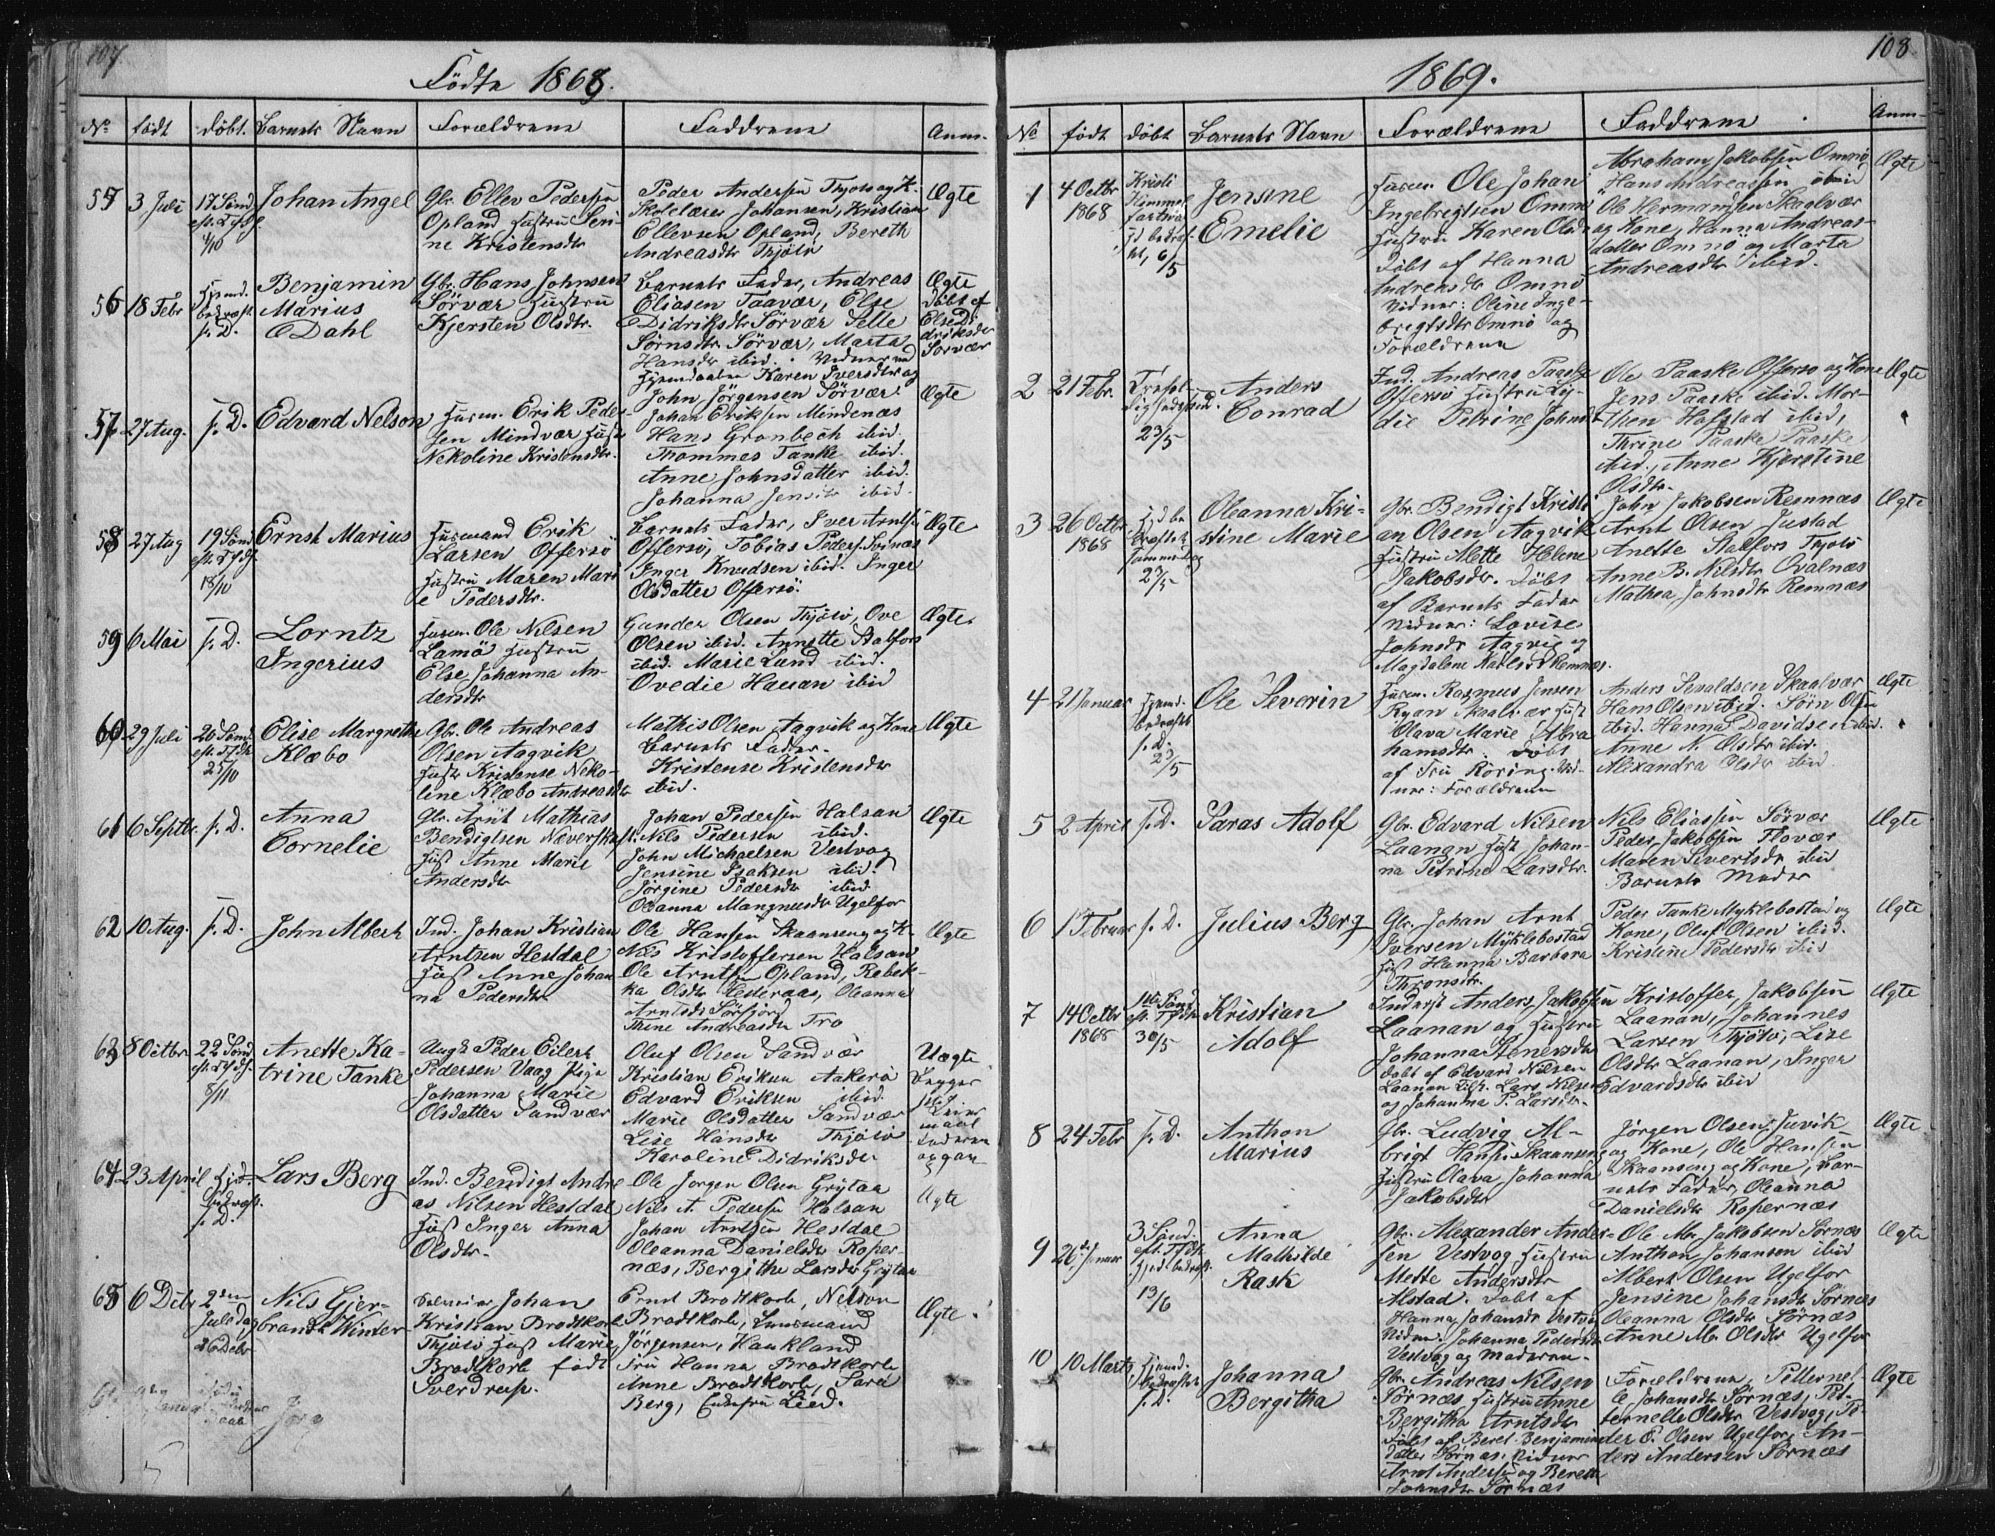 107
Födte 1868.
No födt döbt. Barnets Navn Forældrene Faddrene Anm.
55 3 Juli 17 Sönd. eft. Tfdg. 4/10
Johan Angel
Gbr. Ellev Pedersen
Opland Hustru Seri-
ne Kristensdtr
Peder Andersen Thjotö og K.
Skolelærer Johansen, Kristian
Ellevsen Opland, Bereth
Andreasdtr Thjötö
Ægte
56 18 Febr Hjemd. bekræft. s. D.
Benjamin
Marius
Dahl
Gbr. Hans Johnsen
Sörvær Hustru
Kjersten Olsdtr.
Barnets Fader, Andreas
Eliasen Taavær, Else
Didriksdtr Sörvær
Sörnsdtr Sörvær, Marta
Hansdtr ibid. Vidner ved
Hjemdaaben Karen Iversdtr og
John Jörgensen Sörvær
Ægte
döbt af
Else Di
driksdtr
Sorvær
57 27 Aug. s. D.
Edvard Nelson
Husm. Erik Peder
sen Mindvær Hustr
Nekoline Kristensdtr.
Johan Eriksen Mindenæs
Hans Gronbech ibid.
Thommes Tanke ibid.
Anne Johnsdatter ibid.
Johanna Jensdtr ibid.
Ægte
58 27 Aug 19 Sönd eft. Tfdg. 18/10
Ernst Marius
Husmand Erik
Larsen Offersö
Hustru Maren Mari
e Pedersdtr.
Barnets Fader, Iver Arntsen
Offersö, Tobias Peders. Svinæs
Inger Knudsen ibid. Inger
Olsdatter Offersö.
Ægte
59 6 Mai s. D.
Lorntz
Ingerius
Husm. Ole Nilsen
Lamö Hustru
Else Johanna An-
dersdtr
Gunder Olsen Thjötö, Ove
Olsen ibid. Annette Stalfors
ibid. Marie Lund ibid.
Ovedie Hauan ibid
Ægte.
60 29 Juli 20 Sönd eft. Tfdg. 25/10
Elise Margrethe
Klæbo
Gbr. Ole Andreas
Olsen Aagvik
Hustr Kristense Neko-
line Klæbo Andreasdtr
Mathis Olsen Aagvik og Kone
Barnets Fader.
Kristense Kristensdtr
ibid.
Ægte
61 6 Septbr. s. D.
Anna
Cornelie
Gbr. Arnt Mathias
Bendigtsen Næverskaft
Hust Anne Marie
Andersdtr
Johan Pedersen Halsan
Nils Pedersen ibid.
John Michaelsen Vestvog
Jensine Isaksen ibid.
Jörgine Pedersdtr ibid
Oleanna Mangnusdtr Ugelfor
Ægte
62 10 Aug. s. D.
John Albert
Ind. Johan Kristian
Arntzen Hestdal
Hust Anne Johan
na Pedersdtr
Ole Hansen Skaanseng og K.
Nils Kristoffersen Halsan
Ole Arntsen Opland, Rebek-
ka Olsdtr Hesteraas, Oleanna
Arntsdtr Sörfjord
Trine Andreasdtr Tro
Ægte
63 8 Octbr 22 Sönd eft. Tfdg. 8/11
Anette Ka-
trine Tanke
Ungk Peder Eilert
Pedersen Vaag Pige
Johanna Marie
Olsdatter Sandvær
Oluf Olsen Sandvær
Kristian Eriksen Aakerö
Edvard Eriksen ibid.
Marie Olsdatter Sandvær
Lise Hansdtr Thjötö
Karoline Didriksdtr
Uægte
Begges
1ste Leier
maal
64 23 April Hjd. bekræft. s. D.
Lars Berg
Ind. Bendigt Andre
as Nilsen Hestdal
Hust Inger Anna
Olsdtr.
Ole Jorgen Olsen Grytaa
Nils A. Pedersen Halsan
Johan Arntsen Hestdal
Oleanna Danielsdtr Roper-
næs, Bergithe Larsdtr Grytaa
Ægte
65 6 Debr 2den Juledag 26 Debr
Nils Gjer-
brandt Winter
Johan
Kristian Brodtkorb
Thjötö Hust Marie
Brodtkorb födt
Sverdrup.
Ernst Brodtkorb, Nelson
Brodtkorb, Lensmand
Jörgensen, Haukland
Fru Hanna Brodtkorb
Anne Brodtkorb, Sara
Berg, Lied.
Ægte.
108
1869.
No födt döbt Barnets Navn Forældrene Faddrene Anm.
1 4 Octbr 1868 Kristi Himmel fartsd. Hjd bekræft et, 6/5
Jensine
Emelie
Husm. Ole Johan
Ingebrigtsen Omnö
Hustru Karen Olsdtr
Döbt af Hanna
Andreasdtr Omnö
Vidner: Oline Inge-
brigtsdtr Omnö og
Forældrene
Abraham Jakobsen Omnö
Hans Andreassen ibid
Ole Hermansen Skaalvær
og Kone, Hanna Andreas-
datter Omnö og Marta
Andreasdtr ibid.
Ægte
2 21 Febr. Trefol- dighedssönd. 23/5
Anders
Conrad
Ind. Andreas Paaske
Offersö Hustru Ly-
die Petrine Johnsdtr
Ole Paaske Offersö og Kone
Jens Paaske ibid. Mor-
Olsen Hofstad ibid,
Thrine Paaske Paaske
ibid., Anne Kjerstine
Olsdtr.
Ægte
3 26 Octbr 1868 Hjd be kræftet samme Dag 23/5
Oleanna Kri-
stine Marie
Gbr. Bendigt Kristi
an Olsen Aagvik
Hustru Mette Helene
Jakobsdtr. Döbt
af Barnets Fader
Vidner: Lovise
Johnsdtr Aagvig og
Magdalene Karlsdtr Remnæs.
John Jakobsen Remnæs
Arnt Olsen Justad
Anette Stalfors Thjötö
Anne B. Nilsdtr Qvalnæs
Mathea Johnsdtr Remnæs
Ægte
4 21 Januar Hjemd. bekræftet s. D. 23/5
Ole Severin
Husm. Rasmus Jensen
Ryan Skaalvær Hust
Olava Marie Abra
hamsdtr. Döbt
af Fru Röring. Vid-
ner: Forældrene
Anders Sevaldsen Skaalvær
Hans Olsen ibid. Sörn Olsen
ibid. Hanna Davidsen ibid.
Anne N. Olsdtr ibid.
Alexandra Olsdtr ibid.
Ægte
5 2 April s. D.
Paras Adolf
Gbr. Edvard Nilsen
Laanan Hust Johan-
na Petrine Larsdtr.
Nils Eliassen Sörvær
Peder Jakobsen Flovær
Maren Sivertsdtr ibid
Barnets Moder
Ægte
6 1 Februar s. D.
Julius Berg
Gbr. Johan Arnt
Iversen Myklebostad
Hust Hanna Barbara
Thronsdtr.
Peder Tanke Myklebostad og
Kone, Oluf Olsen ibid.
Kristine Pedersdtr ibid
Ægte
7 14 Octbr 1868 1ste Sönd eft. Tfdg 30/5
Kristian
Adolf
Inderst Anders Jakobsen
Laanan og Hustru
Johanna Stenersdtr
döbt af Edvard Nilsen
Laanan Lars Nilsen
og Johanna P. Larsdtr.
Kristoffer Jakobsen
Laanan, Johannes
Larsen Thjötö, Lise
Olsdtr Laanan, Inger
Edvardsdtr ibid
Ægte
8 24 Febr s. D.
Anthon
Marius
Gbr. Ludvig Al-
brigt Hans. Skaanseng
Hustru Olava Johanna
Jakobsdtr
Jörgen Olsen Juvik
og Kone, Ole Hansen
Skaanseng og Kone, Bar-
nets Fader, Oleanna
Danielsdtr Ropernæs
Ægte
9 26de Januar 3 Sönd. eft. Tfdg. Hjd. bekræft. 13/6
Anna
Mathilde
Rask
Gbr. Alexander Ander-
sen Vestvog Hustru
Mette Andersdtr
Alstad. Döbt af
Hanna Johansdtr Vestvog
Vidner. Johanna Pedersdtr
Vestvog og Moderen.
Ole M. Jakobsen Sörnæs
Anthon Johansen ibid
Albert Olsen Ugelfor
Jensine Johansdtr Sörnæs
Oleanna Olsdtr Sörnæs
Anne M. Olsdtr Ugelfor
Ægte
10 10 Marts Hjemd. bekræftet s. D.
Johanna
Bergitha
Gbr. Andreas Nilsen
Sörnæs Hustru Anne
Bergitha Arntsdtr
Döbt af Beret Benjamins
datter Sörnæs. Vidner
Arnt Andersen og Berethe
Johnsdtr Sörnæs
Forældrene, Pitternel-
le Johansdtr Sörnæs, Pit-
ternelle Olsdtr Vestvog, Pe-
der E. Olsen Ugelfor, An-
ders Andersen Sörnæs
Ægte